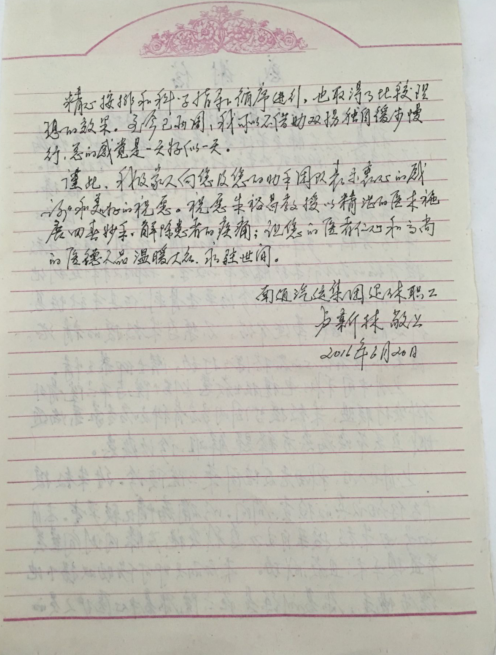 精心按排和科学指导循序进行，也取得了比较理
想的效果。至今已两周，我可以不借助双拐独自缓步慢
行，总的感觉是一天好似一天。
谨此，我及家人向您及您的助手团队表示衷心的感
谢和美好的祝愿。祝愿朱裕昌教授以精湛的医术施
展回春妙手，解除患者的疾痛；让您的医者仁心和高尚
的医德人品温暖人名，永驻世间。
南通汽运集团退休职工
卢新林 敬上
2016年6月20日